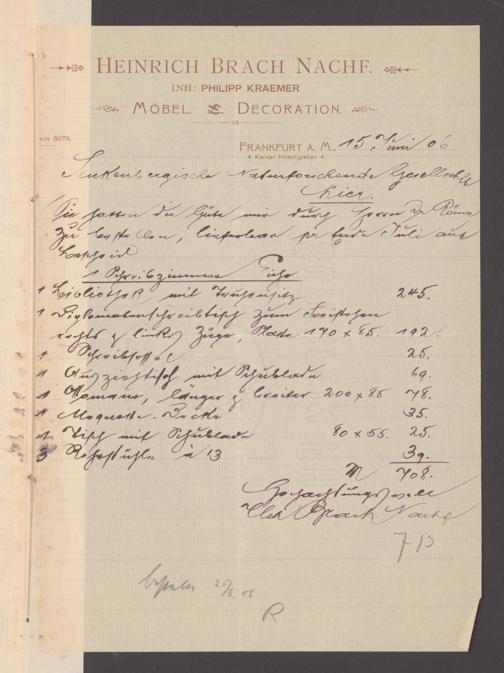 HEINRICH BRACH NACHF.
INH: PHILIPP KRAEMER
MÖBEL. & DECORATION.
FRANKFURT A. M., 15 Juni 06
4 Kleiner Hirschgraben 4.
Senkenbergische Naturforschende Gesellschaft
hier.
Sie hatten die Güte mir durch Herrn Dr Römer
zu bestellen, lieferbar per Ende Juli aus
1 Schreibzimmer Eiche
1 Bibliothek mit Truhensitz 245.
1 Diplomatenschreibtisch zum Freistehen
rechts & links Züge, Platte 170 x 85. 192.
1 Schreibsessel 25.
1 Ausziehtisch mit Schublade 69.
1 Ottomane, länger & breiter 200 x 85 78.
1 Moquette-Decke 35.
1 Tisch mit Schublade 80 x 55. 25.
3 Rohrstühle à 13 39.
M 708.
Hochachtungsvoll
Hch Brach Nachf
bezahlt 25/6 06
R